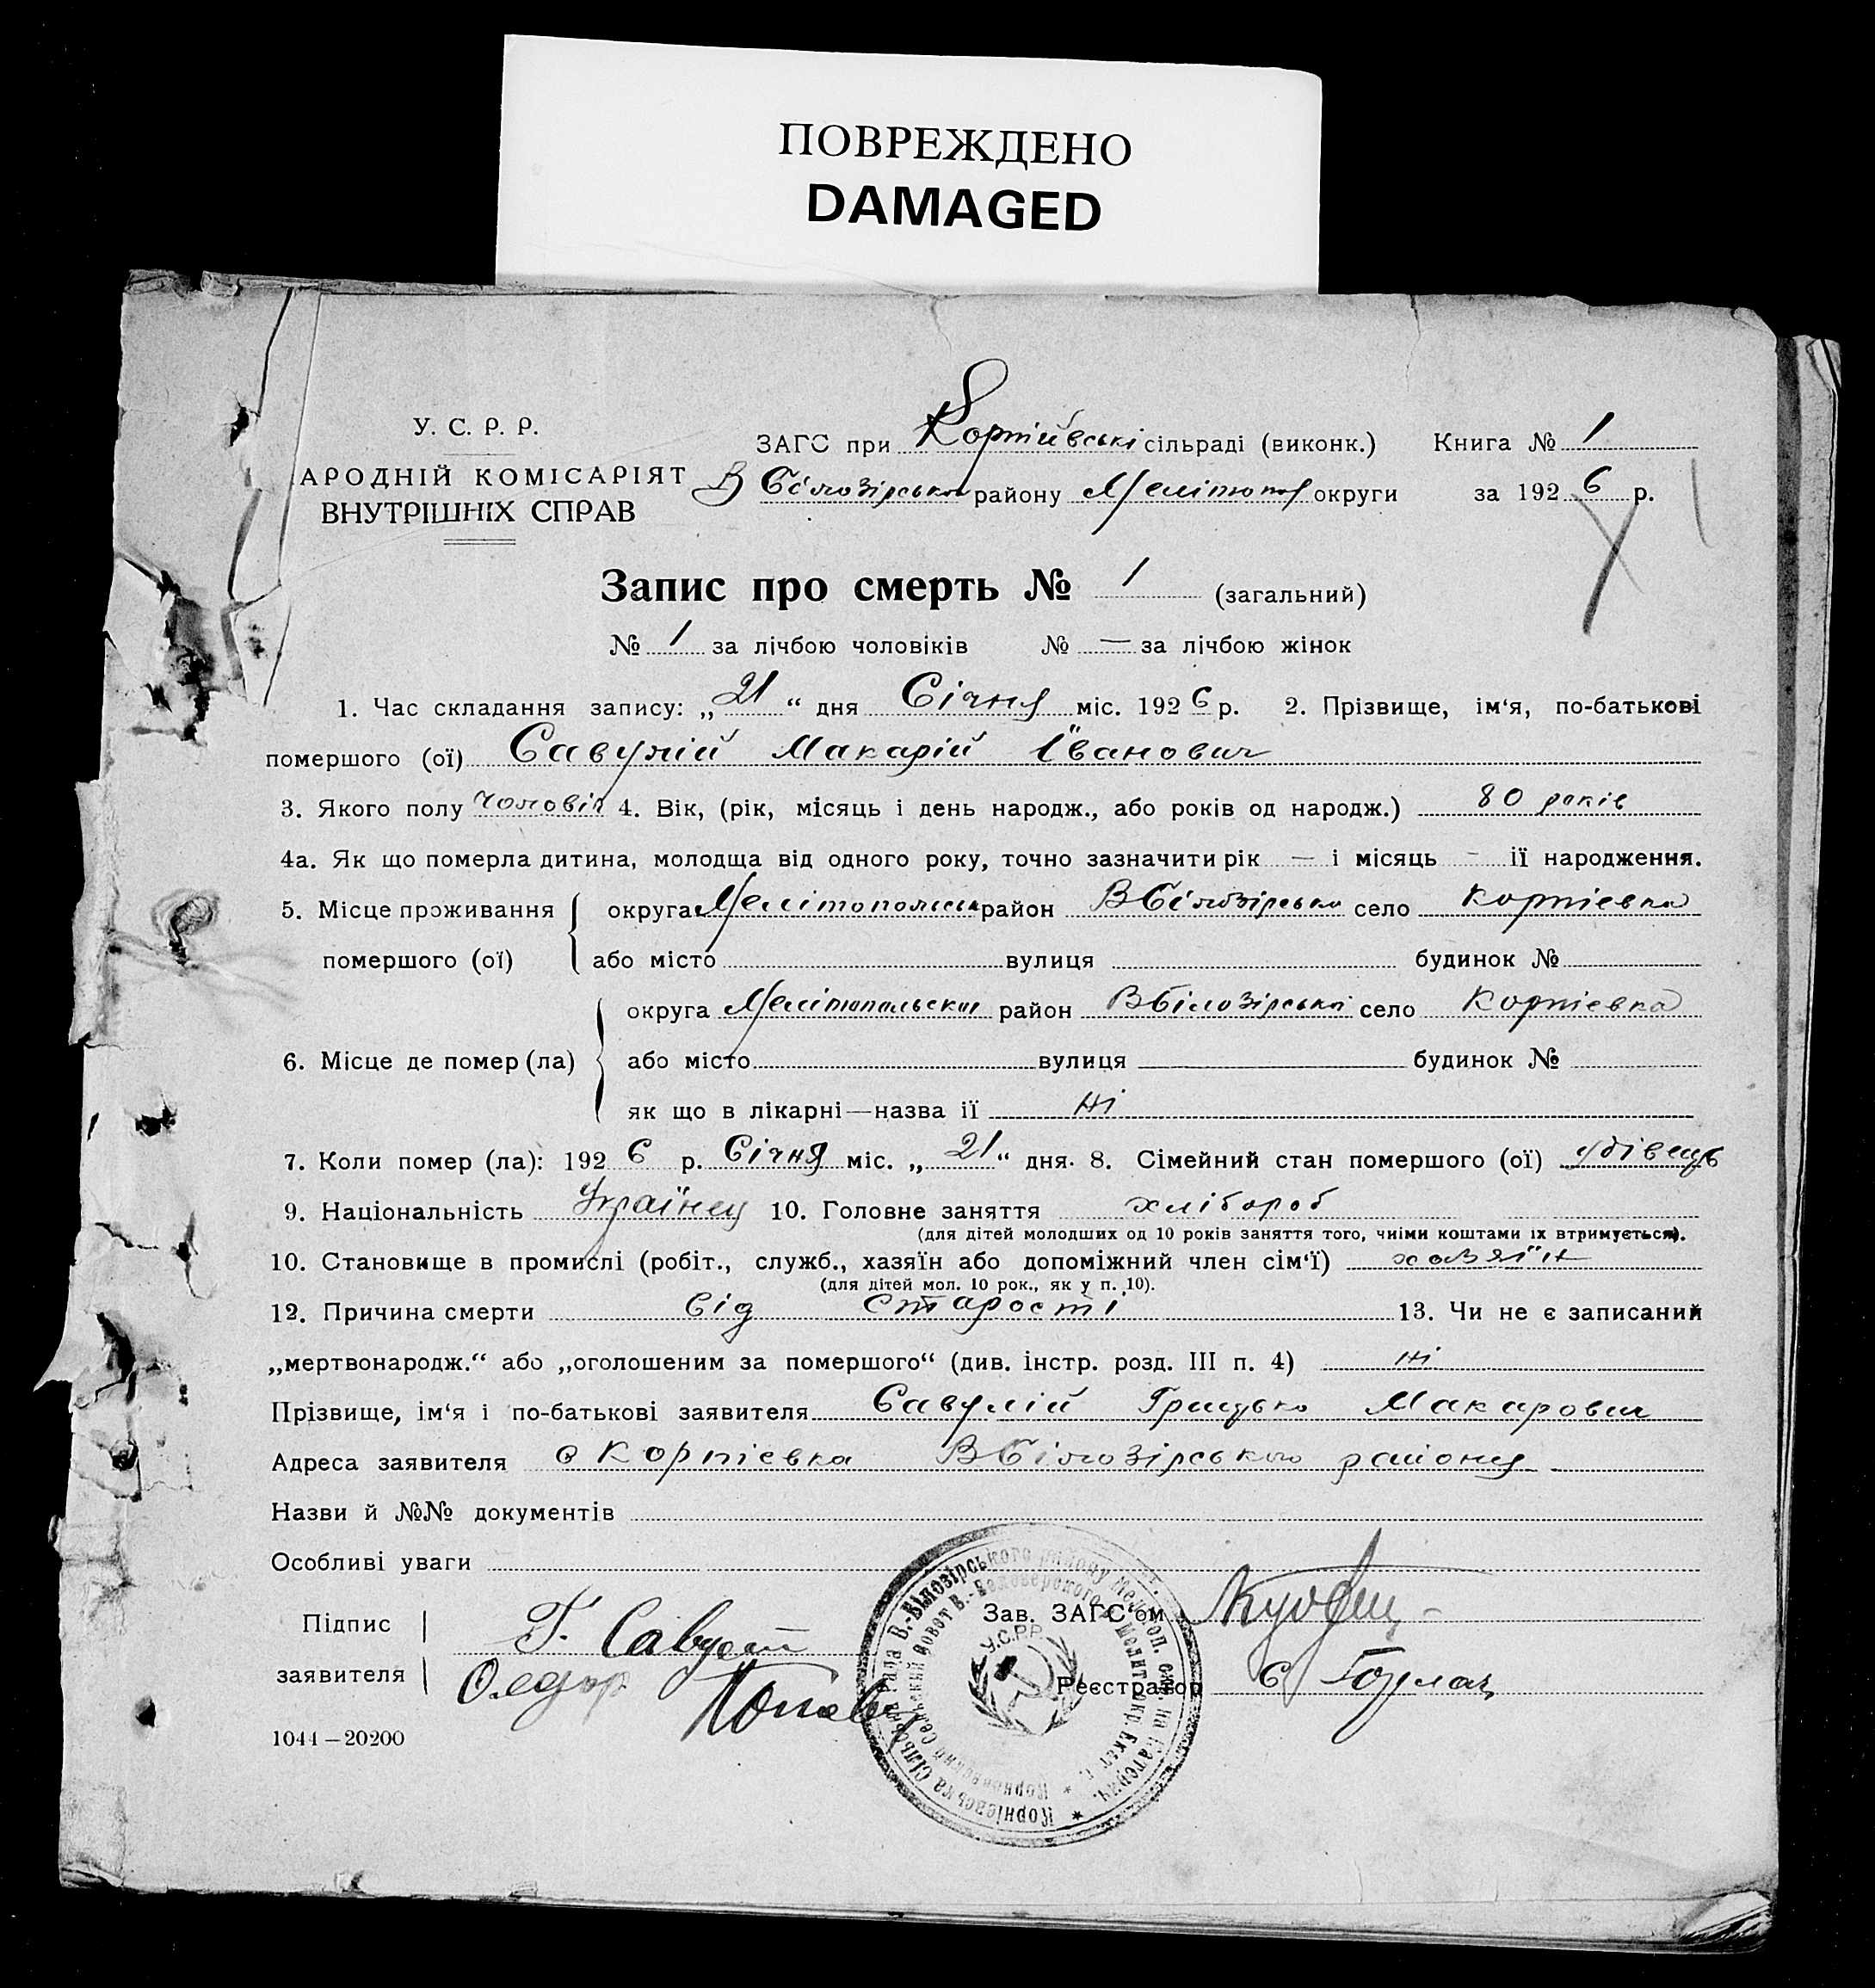 ПОВРЕЖДЕНО
DAMAGED
У. С. Р. Р.
АРОДНІЙ КОМІСАРІЯТ
ВНУТРІШНІХ СПРАВ
ЗАГС при Корніївські сільраді (виконк.) Книга № 1
В Білозірської району Мелітоп округи за 1926 р.
Запис про смерть № 1 (загальний)
№ 1 за лічбою чоловіків № — за лічбою жінок
1. Час складання запису: „21“ дня Січня міс. 1926 р. 2. Прізвище, ім‘я, по-батькові
помершого (ої) Савулій Макарій Іванович
3. Якого полу чоловік 4. Вік, (рік, місяць і день народж., або років од народж.) 80 років
4а. Як що померла дитина, молодща від одного року, точно зазначити рік — і місяць - її народження.
5. Місце проживання округа Мелітопольська район ВБілозірська село Корніевка
помершого (ої) або місто вулиця будинок №
округа Мелітопольская район ВБілозірської село Корніевка
6. Місце де помер (ла) або місто вулиця будинок №
як що в лікарні—назва її ні
7. Коли помер (ла): 1926 р. Січня міс. „21“ дня. 8. Сімейний стан помершого (ої) удівець
9. Національність Українец 10. Головне заняття хлібороб
(для дітей молодших од 10 років заняття того, чиіми коштами їх втримується).
10. Становище в промислі (робіт., служб., хазяїн або допоміжний член сім‘ї) хазяїн
(для дітей мол. 10 рок., як у п. 10).
12. Причина смерти від старості 13. Чи не є записаний
„мертвонародж.“ або „оголошеним за помершого“ (див. інстр. розд. III п. 4) ні
Прізвище, ім‘я і по-батькові заявителя Савулій Грицько Макарович
Адреса заявителя с Корніевка ВБілозірського району
Назви й №№ документів
Особливі уваги
Підпис
заявителя
Г. Савулій
Зав. ЗАГС‘ом
Реєстратор
Корніевська Сільська Рада В.-Білозірського району Мелітоп. окр. на Катерин.
Корніевский Сельский Совет В.-Белозерского Мелитокр. Екат. г.
У.С.Р.Р.
1044—20200